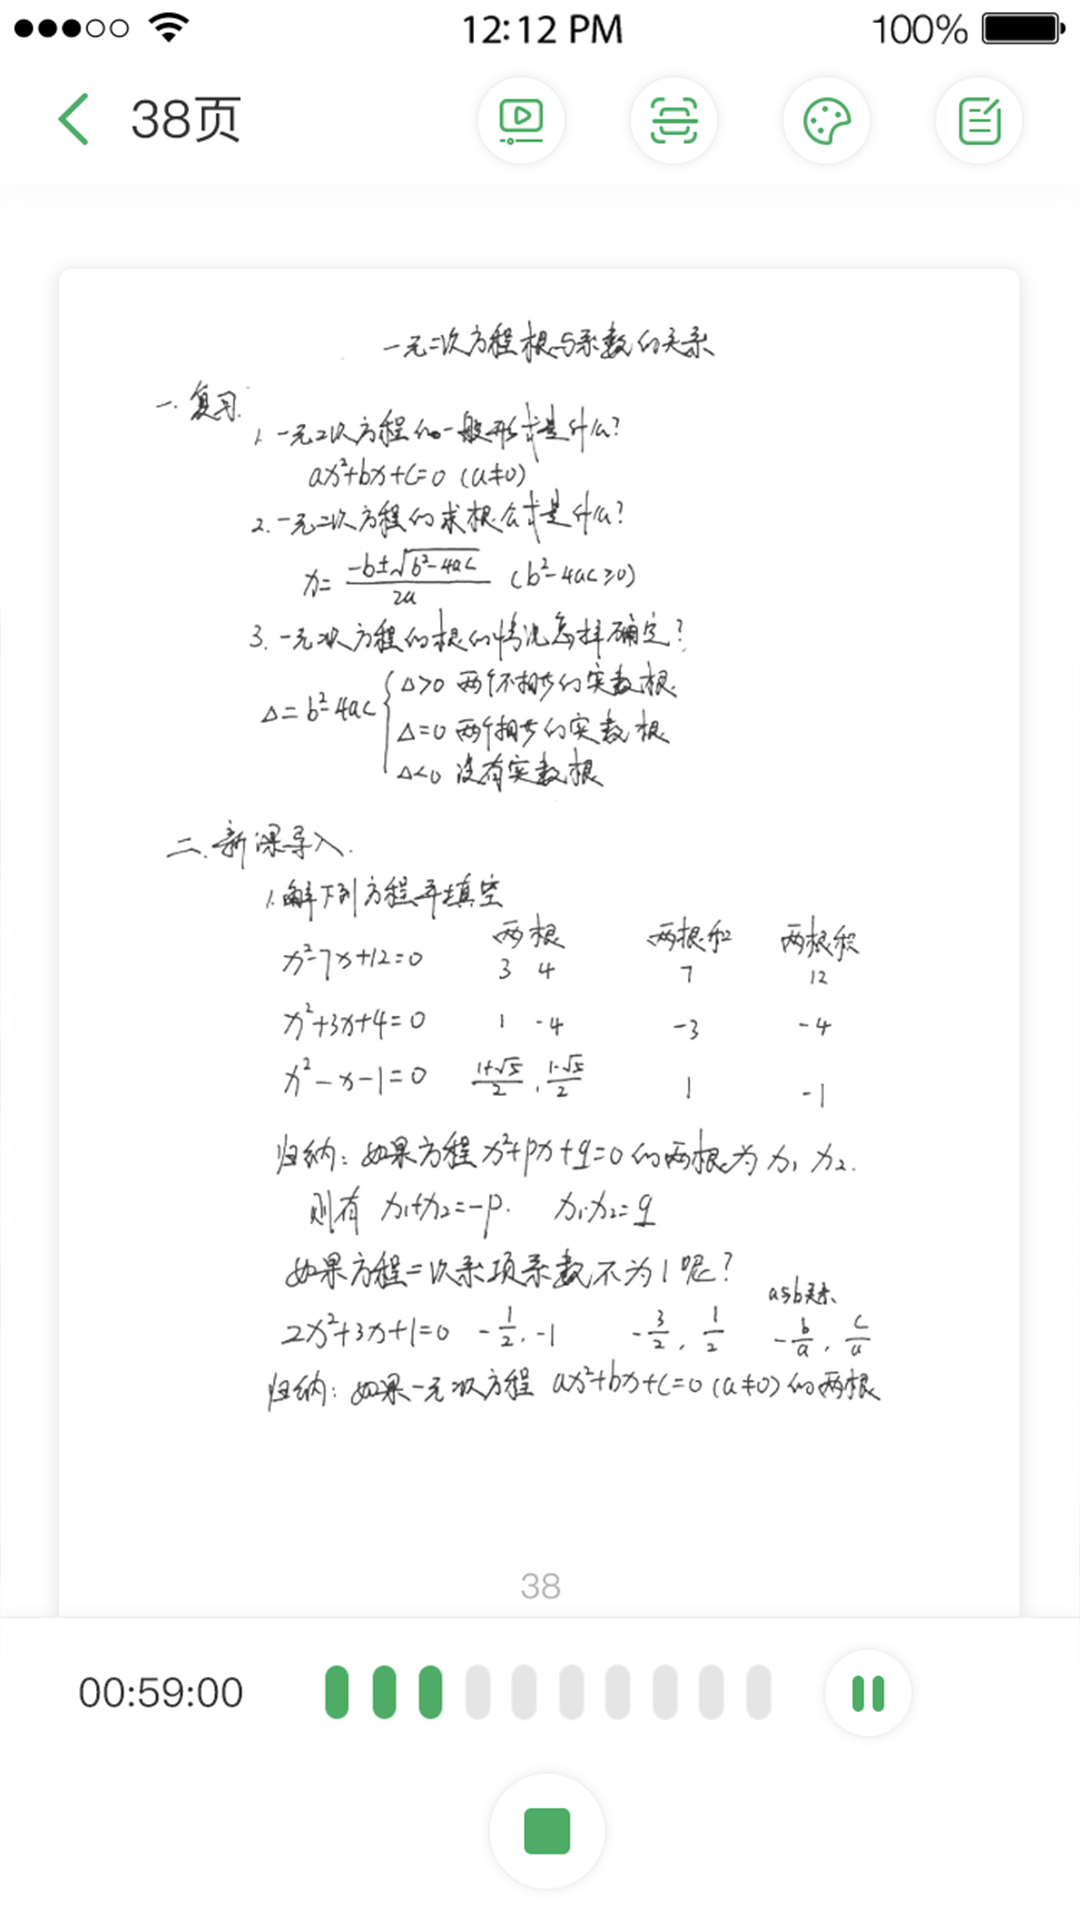 12:12 PM 100%
38页
一元二次方程根与系数的关系
一.复习.
1. 一元二次方程的一般形式是什么?
ax²+bx+c=0 (a≠0)
2. 一元二次方程的求根公式是什么?
x= -b±√b²-4ac / 2a (b²-4ac≥0)
3. 一元二次方程的根的情况怎样确定?
Δ>0 两个不相等的实数根.
Δ=b²-4ac { Δ=0 两个相等的实数根
Δ<0 没有实数根
二.新课导入.
1.解下列方程并填空
两根 两根和 两根积
x²-7x+12=0 3 4 7 12
x²+3x+4=0 1 -4 -3 -4
x²-x-1=0 1+√5/2 , 1-√5/2 1 -1
归纳: 如果方程x²+px+q=0的两根为x₁ x₂.
则有 x₁+x₂=-p. x₁·x₂=q
如果方程二次系项系数不为1呢?
a与b关系
2x²+3x+1=0 -1/2, -1 -3/2, 1/2 -b/a, c/a
归纳: 如果一元二次方程 ax²+bx+c=0(a≠0)的两根
38
00:59:00